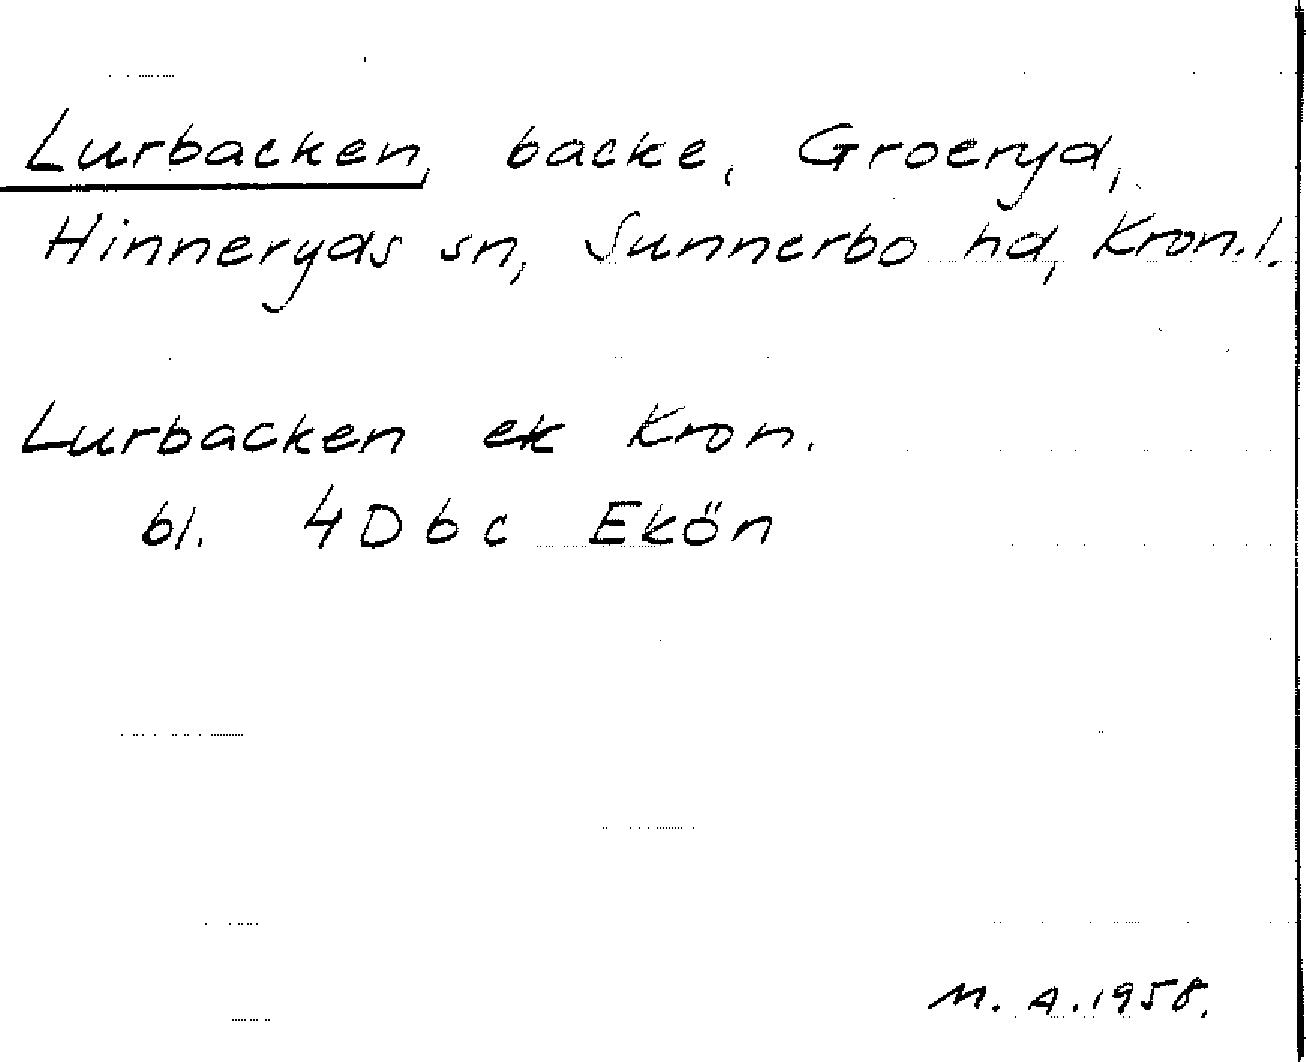 Lurbacken, backe, Groeryd,
Hinneryds sn, Sunnerbo hd, Kron.l.
Lurbacken ek Kron.
bl. 4 D b c Ekön
M. A. 1958.